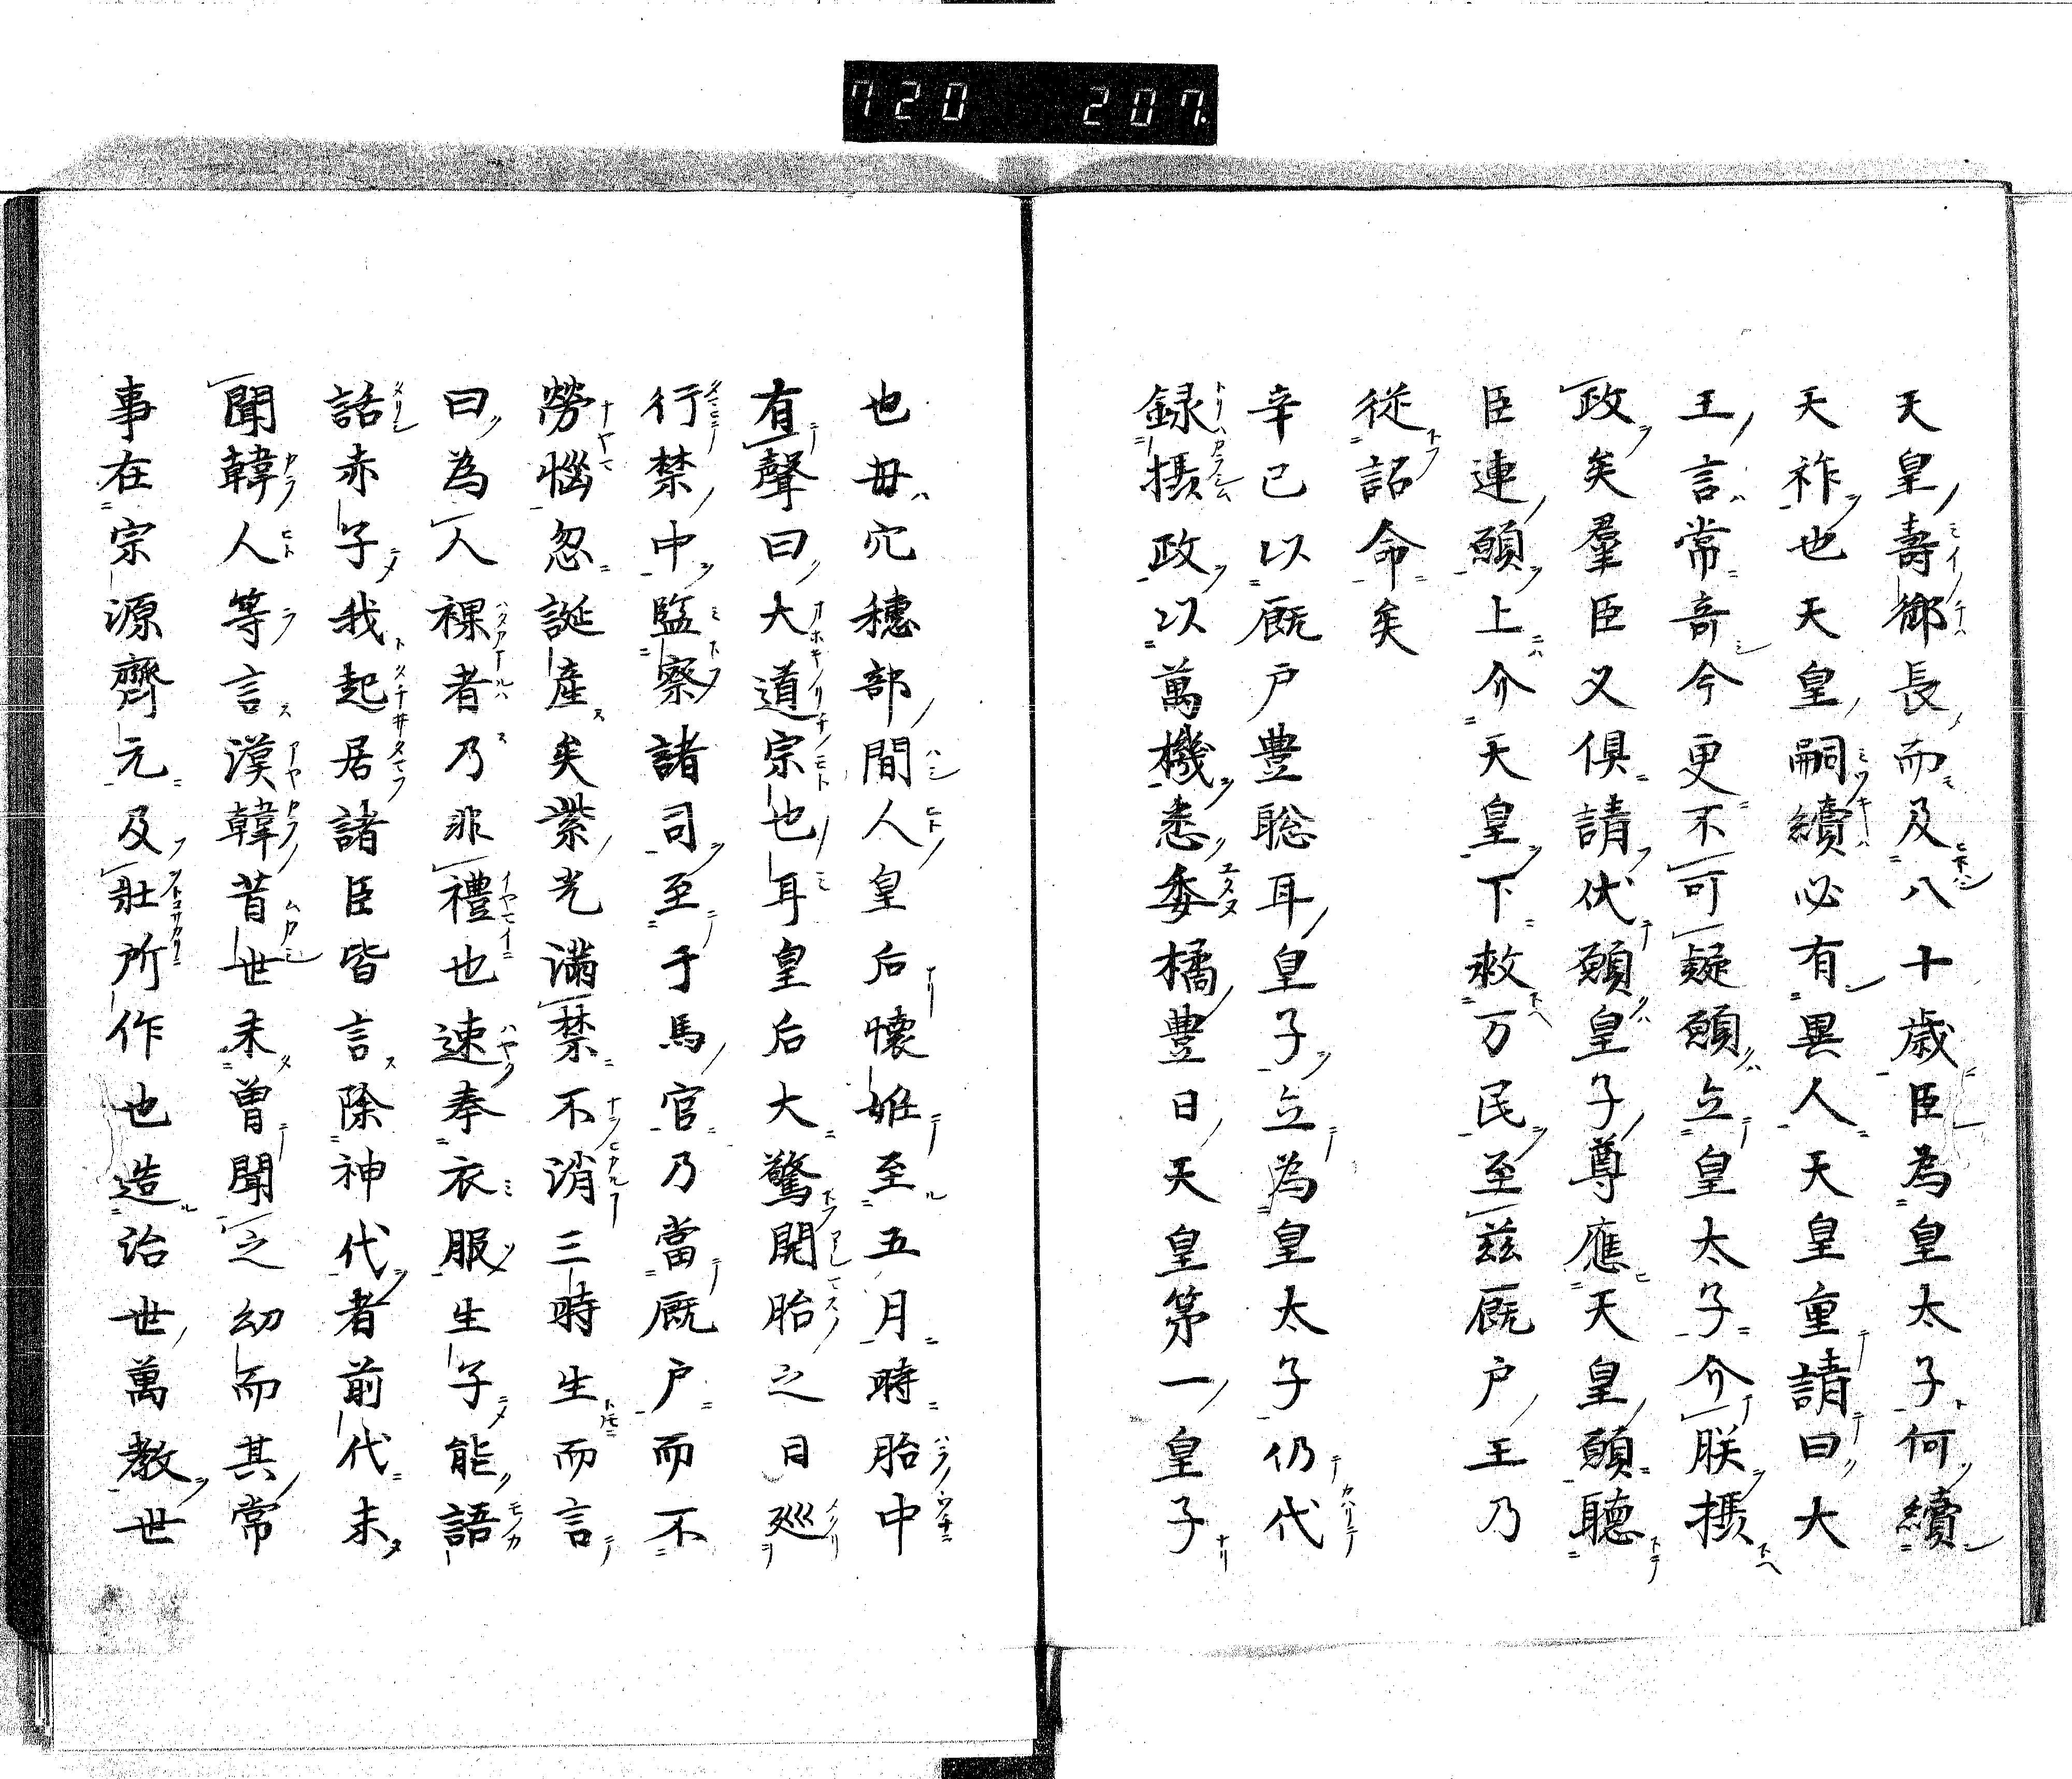 720 207
天皇壽御長而及八十歳臣為皇太子何續
天祚也天皇嗣續必有異人天皇重請曰大
王言常奇今更不可疑願立皇太子介朕摂
政矣羣臣又倶請伏願皇子尊應天皇願聴
臣連願上介天皇下救万民至茲厩戸王乃
従詔命矣
辛已以厩戸豊聡耳皇子立為皇太子仍代
録摂政以萬機悉委橘豊日天皇第一皇子
也母穴穂部間人皇后懐妊至五月時胎中
有聲曰大道宗也耳皇后大驚開胎之日廵
行禁中監察諸司至于馬官乃當厩戸而不
勞惱忽誕産矣紫光満禁不消三時生而言
曰為人裸者乃非禮也速奉衣服生子能語
話赤子我起居諸臣皆言除神代者前代未
聞韓人等言漢韓昔世未曽聞之幼而其常
事在宗源齊元及壮所作也造治世萬教世